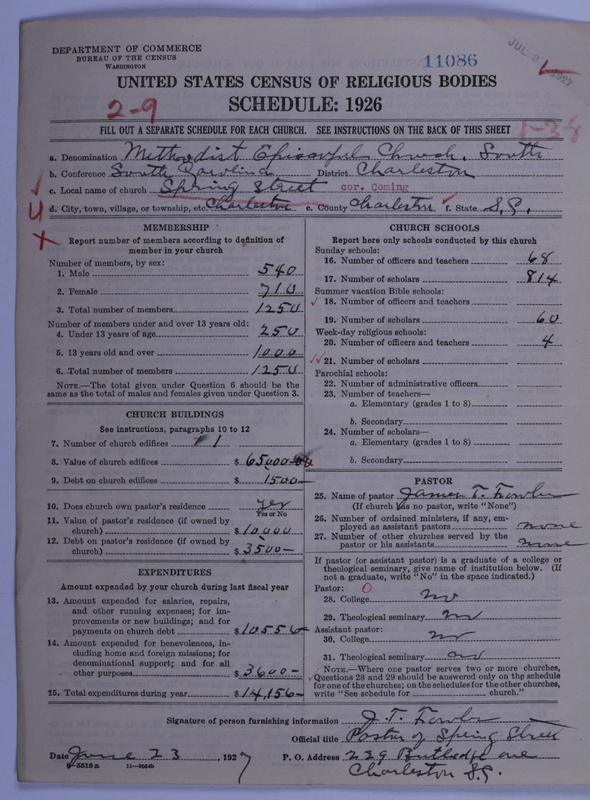 DEPARTMENT OF COMMERCE
BUREAU OF THE CENSUS
WASHINGTON
11086
JUL 1927
UNITED STATES CENSUS OF RELIGIOUS BODIES
SCHEDULE: 1926
2-9
FILL OUT A SEPARATE SCHEDULE FOR EACH CHURCH. SEE INSTRUCTIONS ON THE BACK OF THIS SHEET
a. Denomination Methodist Episcopal Church, South
b. Conference South Carolina District Charleston
c. Local name of church Spring Street cor. Coming
d. City, town, village, or township, etc. Charleston e. County Charleston f. State S.C.
MEMBERSHIP
Report number of members according to definition of member in your church
Number of members, by sex:
1. Male 540
2. Female 710
3. Total number of members 1250
Number of members under and over 13 years old:
4. Under 13 years of age 250
5. 13 years old and over 1000
6. Total number of members 1250
NOTE.—The total given under Question 6 should be the same as the total of males and females given under Question 3.
CHURCH BUILDINGS
See instructions, paragraphs 10 to 12
7. Number of church edifices 1
8. Value of church edifices $65000
9. Debt on church edifices $1500
10. Does church own pastor's residence yes
Yes or No
11. Value of pastor's residence (if owned by church) $10000
12. Debt on pastor's residence (if owned by church) $3500
EXPENDITURES
Amount expended by your church during last fiscal year
13. Amount expended for salaries, repairs, and other running expenses; for improvements or new buildings; and for payments on church debt $10556
14. Amount expended for benevolences, including home and foreign missions; for denominational support; and for all other purposes $3600
15. Total expenditures during year $14,156
CHURCH SCHOOLS
Report here only schools conducted by this church
Sunday schools:
16. Number of officers and teachers 68
17. Number of scholars 814
Summer vacation Bible schools:
18. Number of officers and teachers
19. Number of scholars 60
Week-day religious schools:
20. Number of officers and teachers 4
21. Number of scholars
Parochial schools:
22. Number of administrative officers
23. Number of teachers—
a. Elementary (grades 1 to 8)
b. Secondary
24. Number of scholars—
a. Elementary (grades 1 to 8)
b. Secondary
PASTOR
25. Name of pastor James T. Fowler
(If church has no pastor, write "None")
26. Number of ordained ministers, if any, employed as assistant pastors none
27. Number of other churches served by the pastor or his assistants none
If pastor (or assistant pastor) is a graduate of a college or theological seminary, give name of institution below. (If not a graduate, write "No" in the space indicated.)
Pastor:
28. College no
29. Theological seminary no
Assistant pastor:
30. College no
31. Theological seminary
NOTE.—Where one pastor serves two or more churches, Questions 28 and 29 should be answered only on the schedule for one of the churches; on the schedules for the other churches, write "See schedule for church."
Signature of person furnishing information J. T. Fowler
Official title Pastor of Spring Street
Date June 23, 1927 P. O. Address 229 Rutledge ave
Charleston S.C.